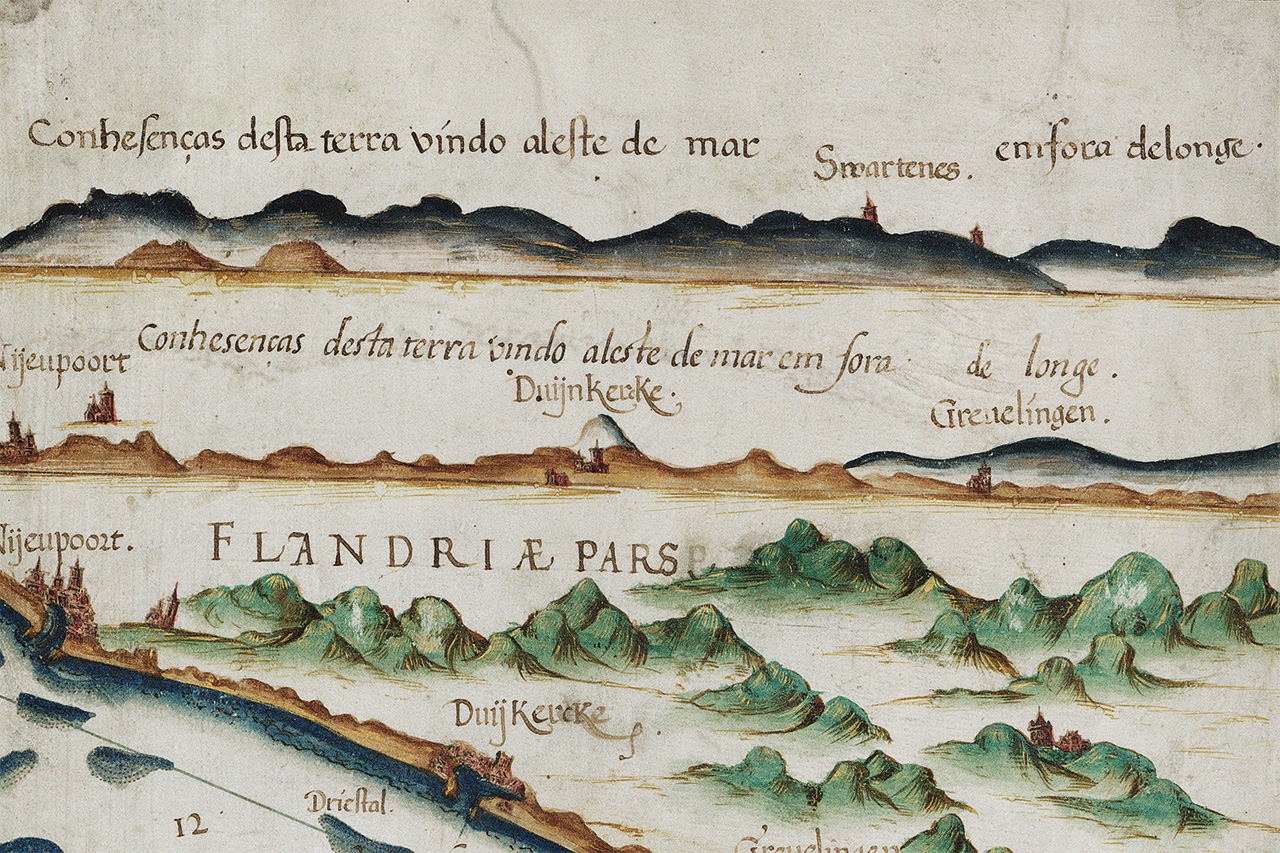 Conhesenças desta terra vindo aleste de mar emfora delonge.
Swartenes.
Conhesencas desta terra vindo aleste de mar em fora de longe.
Nijeupoort
Duijnkercke.
Greuelingen.
Nijeupoort.
FLANDRIÆ PARS
Duijkercke.
Driestal.
12
Greuelingen